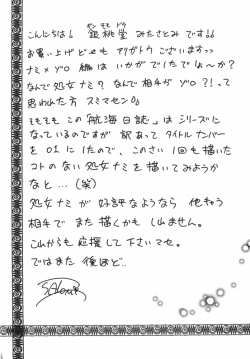 こんにちは！銀桃堂 みたさとみ です!!
ギン モモ ドウ
お買い上げどーも アリガトウ ございますっっ
ナミ×ゾロ 編は いかがでしたでしょーか？
なんで処女ナミ？なんで相手がゾロ?! って
思われた方 スミマセン
そもそも この「航海日誌」は シリーズに
なっているのですが 改まって タイトル ナンバー
を 01 にしたので、このさい 1回も描いた
コトの ない 処女ナミ を 描いてみようか
なと…（笑）
処女ナミ が 好評なようなら 他キャラ
相手で また 描くかも しれません。
これからも 応援して下さいマセ。
ではまた 後ほど…